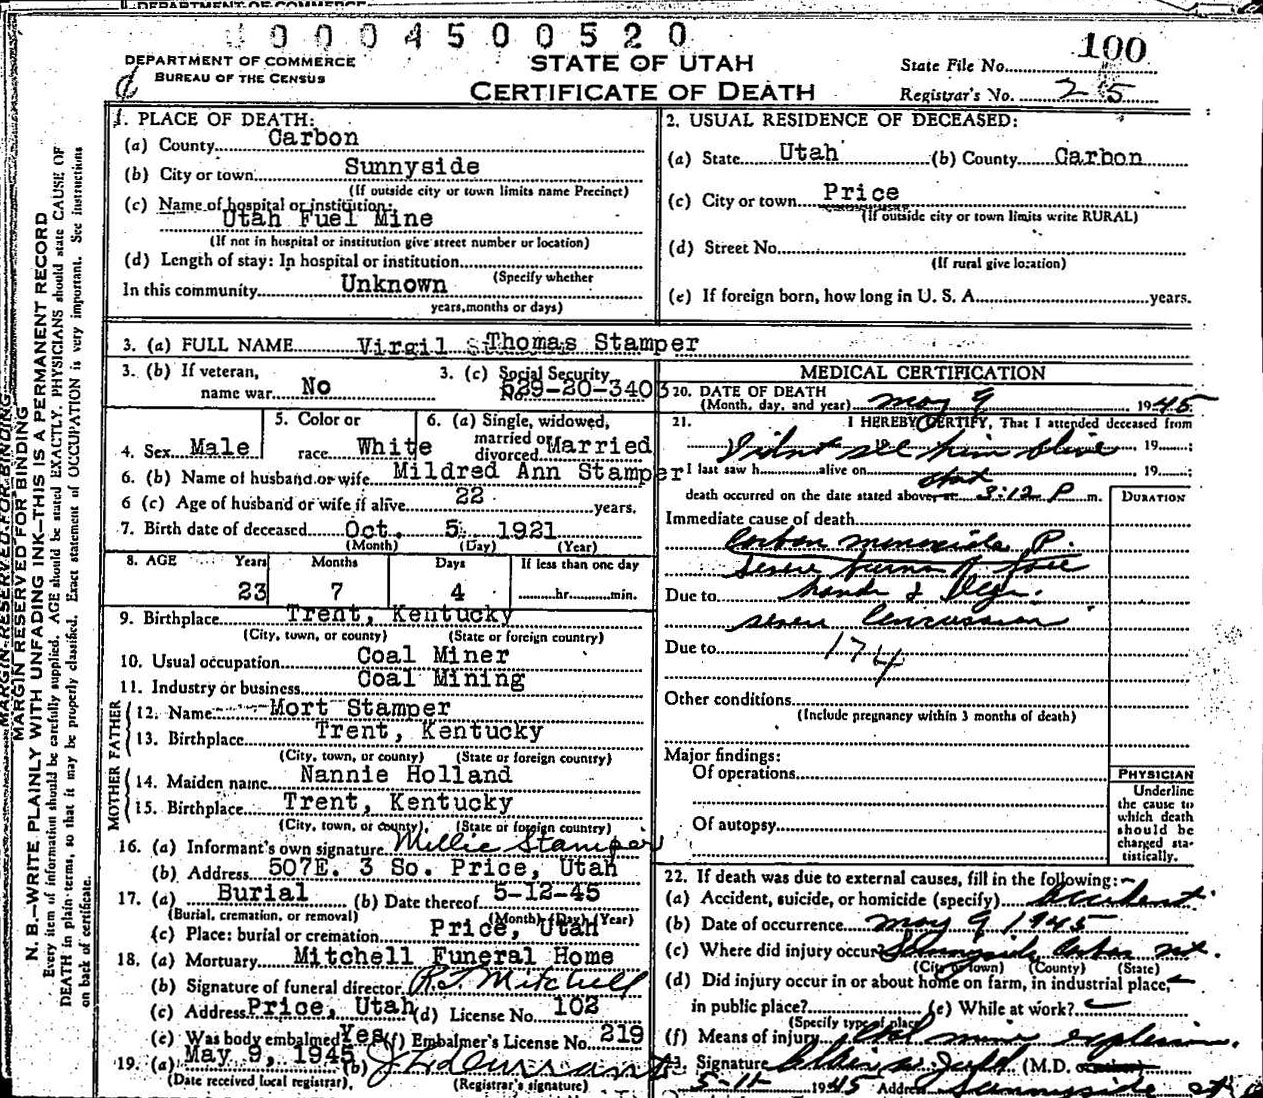 DEPARTMENT OF COMMERCE
0 0 0 4 5 0 0 5 2 0
100
DEPARTMENT OF COMMERCE
BUREAU OF THE CENSUS
STATE OF UTAH
CERTIFICATE OF DEATH
State File No.
Registrar's No. 25
MARGIN RESERVED FOR BINDING
MARGIN RESERVED FOR BINDING
N. B.—WRITE PLAINLY WITH UNFADING INK—THIS IS A PERMANENT RECORD
Every item of information should be carefully supplied. AGE should be stated EXACTLY. PHYSICIANS should state CAUSE OF
DEATH in plain terms, so that it may be properly classified. Exact statement of OCCUPATION is very important. See instructions
on back of certificate.
1. PLACE OF DEATH:
(a) County Carbon
(b) City or town Sunnyside
(If outside city or town limits name Precinct)
(c) Name of hospital or institution:
Utah Fuel Mine
(If not in hospital or institution give street number or location)
(d) Length of stay: In hospital or institution
(Specify whether
In this community Unknown
years, months or days)
2. USUAL RESIDENCE OF DECEASED:
(a) State Utah (b) County Carbon
(c) City or town Price
(If outside city or town limits write RURAL)
(d) Street No.
(If rural give location)
(e) If foreign born, how long in U. S. A. years.
3. (a) FULL NAME Virgil Thomas Stamper
3. (b) If veteran, 3. (c) Social Security
name war No No. 529-20-3403
4. Sex Male
5. Color or
race White
6. (a) Single, widowed,
married or
divorced Married
6. (b) Name of husband or wife Mildred Ann Stamper
6 (c) Age of husband or wife if alive 22 years.
7. Birth date of deceased Oct. 5 1921
(Month) (Day) (Year)
8. AGE Years Months Days If less than one day
23 7 4 hr. min.
9. Birthplace Trent, Kentucky
(City, town, or county) (State or foreign country)
10. Usual occupation Coal Miner
11. Industry or business Coal Mining
FATHER
12. Name Mort Stamper
13. Birthplace Trent, Kentucky
(City, town, or county) (State or foreign country)
MOTHER
14. Maiden name Nannie Holland
15. Birthplace Trent, Kentucky
(City, town, or county) (State or foreign country)
16. (a) Informant's own signature Millie Stamper
(b) Address 507E. 3 So. Price, Utah
17. (a) Burial (b) Date thereof 5-12-45
(Burial, cremation, or removal) (Month) (Day) (Year)
(c) Place: burial or cremation Price, Utah
18. (a) Mortuary Mitchell Funeral Home
(b) Signature of funeral director R.T. Mitchell
(c) Address Price, Utah (d) License No. 102
(e) Was body embalmed Yes (f) Embalmer's License No. 219
19. (a) May 9, 1945 (b)
(Date received local registrar) (Registrar's signature)
MEDICAL CERTIFICATION
20. DATE OF DEATH
(Month, day, and year) May 9 1945
21. I HEREBY CERTIFY, That I attended deceased from
Didnt see him alive 19
I last saw h alive on 19
death occurred on the date stated above, at 3:12 P m.
DURATION
Immediate cause of death
Carbon monoxide P.
severe burns of face
Due to hands & legs.
severe Concussion
Due to 174
Other conditions
(Include pregnancy within 3 months of death)
Major findings:
Of operations
Of autopsy
PHYSICIAN
Underline
the cause to
which death
should be
charged sta-
tistically.
22. If death was due to external causes, fill in the following:
(a) Accident, suicide, or homicide (specify) Accident
(b) Date of occurrence May 9 1945
(c) Where did injury occur? Sunnyside Carbon Ut.
(City or town) (County) (State)
(d) Did injury occur in or about home on farm, in industrial place,
in public place? (e) While at work?
(Specify type of place)
(f) Means of injury mine explosion.
23. Signature (M.D. or
5-11- 1945 Address Sunnyside